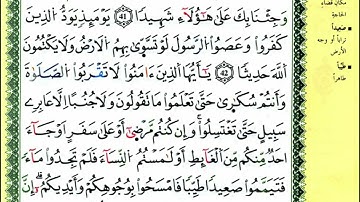 وَجِئْنَا بِكَ عَلَىٰ هَٰؤُلَاءِ شَهِيدًا (41) يَوْمَئِذٍ يَوَدُّ الَّذِينَ
كَفَرُوا وَعَصَوُا الرَّسُولَ لَوْ تَسَّوَّىٰ بِهِمُ الْأَرْضُ وَلَا يَكْتُمُونَ
اللَّهَ حَدِيثًا (42) يَا أَيُّهَا الَّذِينَ ءَامَنُوا لَا تَقْرَبُوا الصَّلَوٰةَ
وَأَنتُمْ سُكَٰرَىٰ حَتَّىٰ تَعْلَمُوا مَا تَقُولُونَ وَلَا جُنُبًا إِلَّا عَابِرِي
سَبِيلٍ حَتَّىٰ تَغْتَسِلُوا وَإِن كُنتُم مَّرْضَىٰ أَوْ عَلَىٰ سَفَرٍ أَوْ جَاءَ
احَدٌ مِّنكُم مِّنَ الْغَائِطِ أَوْ لَٰمَسْتُمُ النِّسَاءَ فَلَمْ تَجِدُوا مَاءً
فَتَيَمَّمُوا صَعِيدًا طَيِّبًا فَامْسَحُوا بِوُجُوهِكُمْ وَأَيْدِيكُمْ إِنَّ
مكان قضاء
الحاجة
صعيداً
تراباً أو وجه
الأرض
طيباً
طاهراً